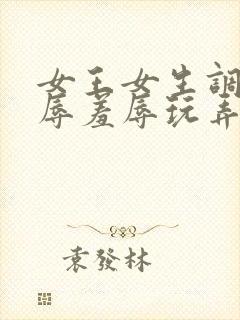 女王女生調
辱羞辱玩弄
袁發林